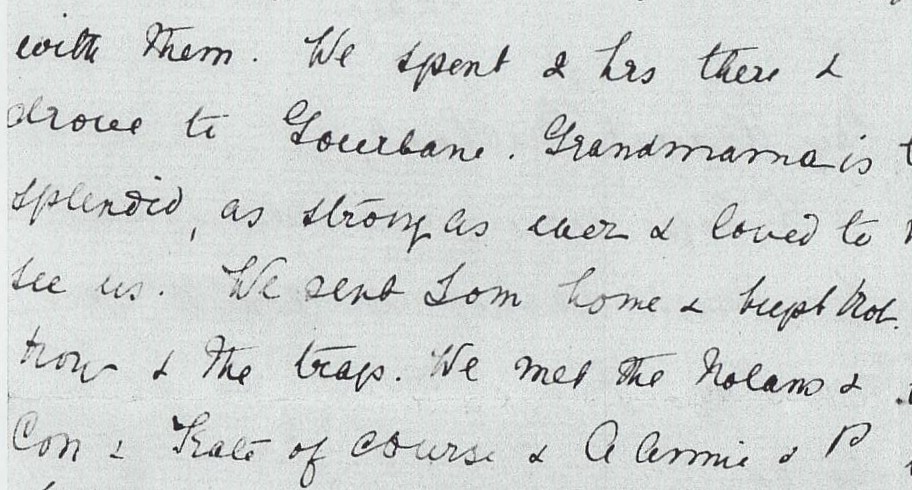 with them. We spent 2 hrs there &
drove to Gowrbane. Grandmama is
splendid, as strong as ever & loved to
see us. We sent Tom home & kept
& the trap. We met the Nolans &
Con & Kate of course & A Annie & P